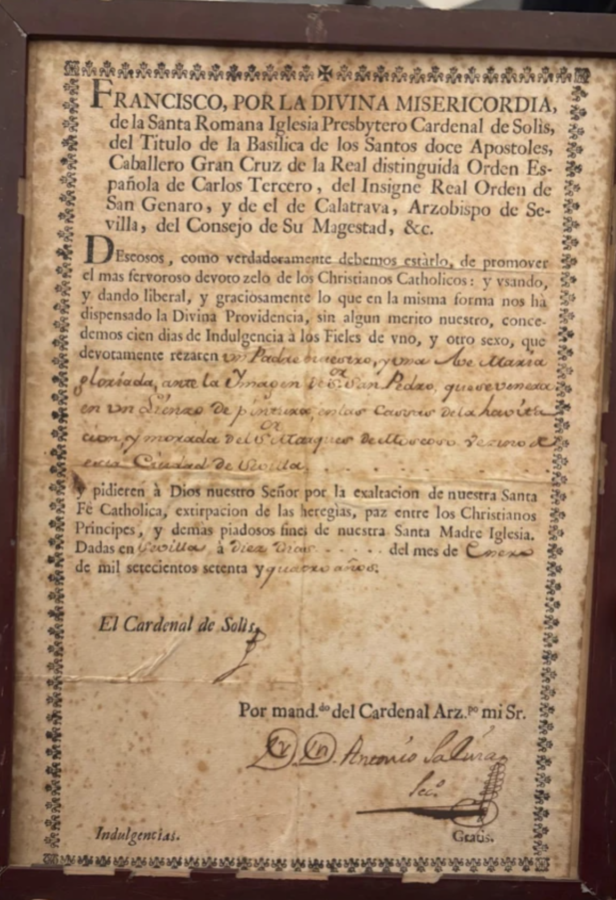 FRANCISCO, POR LA DIVINA MISERICORDIA,
de la Santa Romana Iglesia Presbytero Cardenal de Solis,
del Titulo de la Basilica de los Santos doce Apostoles,
Caballero Gran Cruz de la Real distinguida Orden Es-
pañola de Carlos Tercero, del Insigne Real Orden de
San Genaro, y de el de Calatrava, Arzobispo de Se-
villa, del Consejo de Su Magestad, &c.
DEseosos, como verdaderamente debemos estàrlo, de promover
el mas fervoroso devoto zelo de los Christianos Catholicos: y vsando,
y dando liberal, y graciosamente lo que en la misma forma nos hà
dispensado la Divina Providencia, sin algun merito nuestro, conce-
demos cien dias de Indulgencia à los Fieles de vno, y otro sexo, que
devotamente rezaren un Padre nuestro, y una Ave Maria
gloriada, ante la Ymagen de Sr. San Pedro, que se venera
en un Lienzo de pintura en las Casas de la havita
cion, y morada del Sr. Marques de Moscoso Vecino de
esta Ciudad de Sevilla . . . . . .
y pidieren à Dios nuestro Señor por la exaltacion de nuestra Santa
Fè Catholica, extirpacion de las heregias, paz entre los Christianos
Principes, y demas piadosos fines de nuestra Santa Madre Iglesia.
Dadas en Sevilla à diez dias . . . . . del mes de Enero
de mil setecientos setenta y quatro años.
El Cardenal de Solis,
Por mand.do del Cardenal Arz.po mi Sr.
Antonio
Sec.o
Indulgencias.
Gratis.